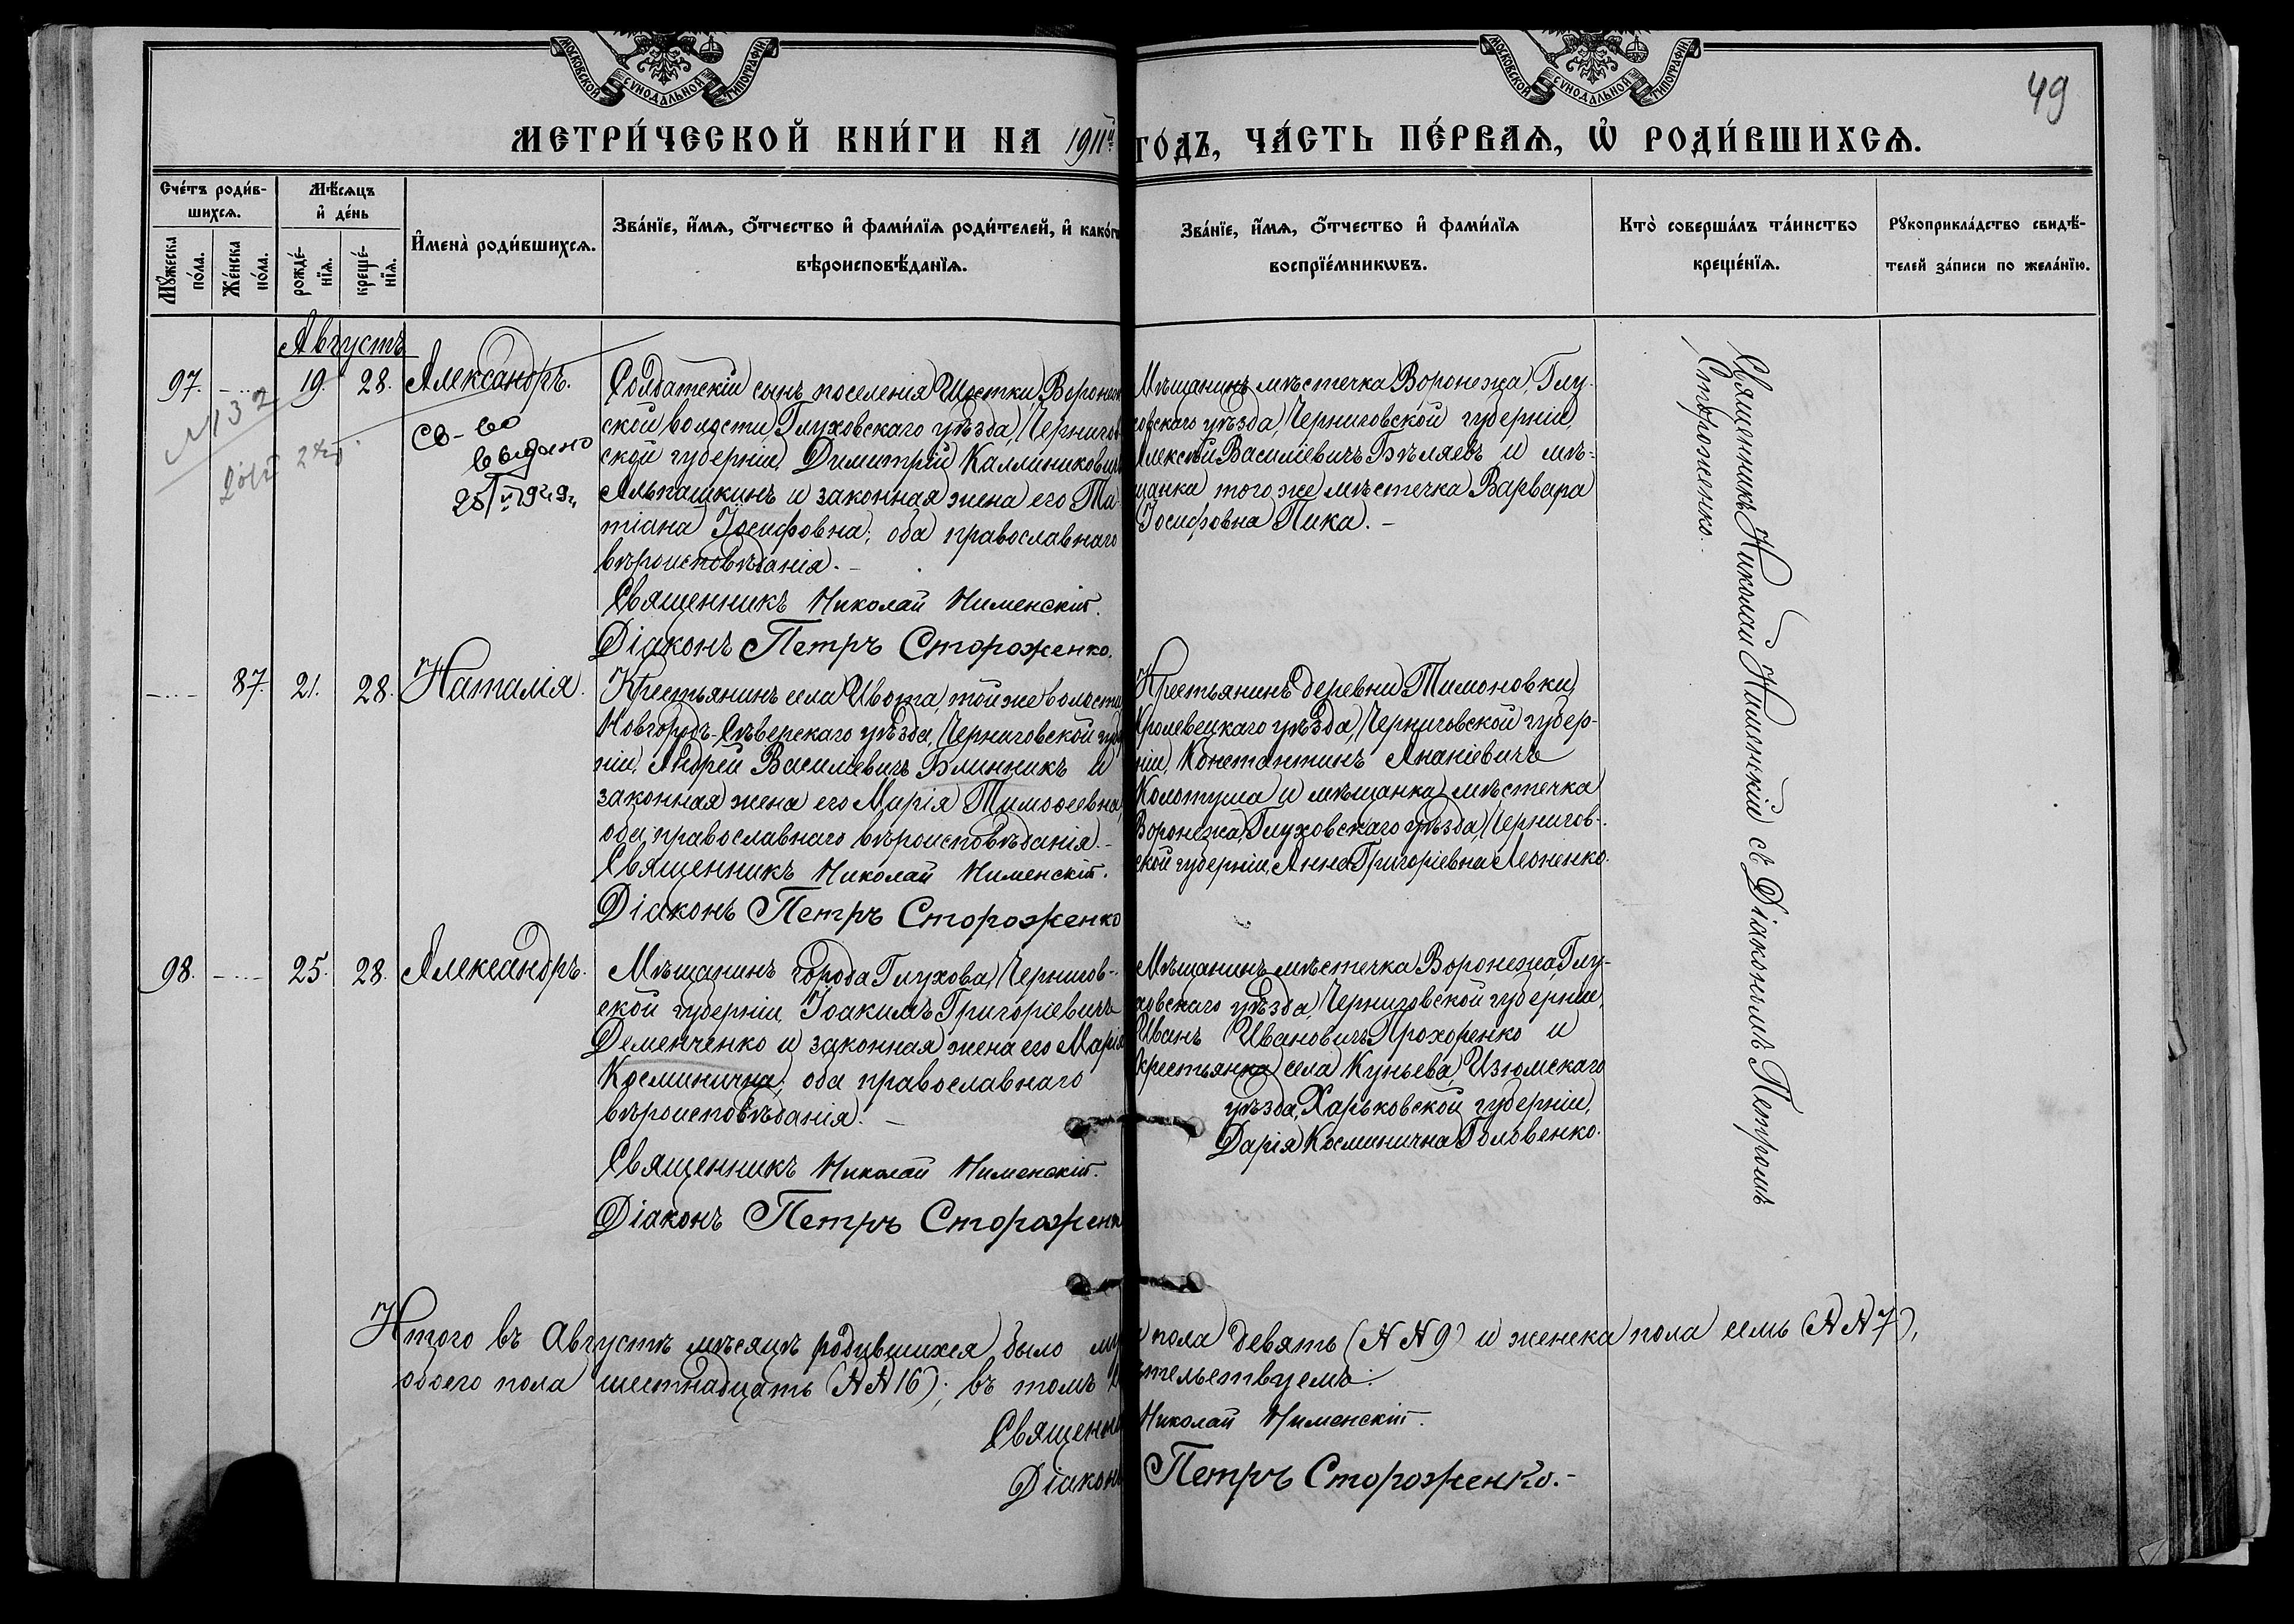 МОСКОВСКОЙ СѴНОДАЛЬНОЙ ТИПОГРАФІИ
МОСКОВСКОЙ СѴНОДАЛЬНОЙ ТИПОГРАФІИ
49
МЕТРИ́ЧЕСКОЙ КНИ́ГИ НА 1911й ГОДЪ, ЧА́СТЬ ПЕ́РВАѦ, Ѡ҆ РОДИ́ВШИХСѦ.
Сче́тъ роди́в-
шихсѧ.
Мѣ́сѧцъ
и҆ де́нь
Мꙋ́жеска по́ла.
Же́нска по́ла.
рожде́-нїѧ.
креще́-нїѧ.
И҆мена̀ роди́вшихсѧ.
Зва́нїе, и҆́мѧ, ѻ҆́тчество и҆ фами́лїѧ роди́телей, и҆ како́гѡ
вѣроисповѣ́данїѧ.
Зва́нїе, и҆́мѧ, ѻ҆́тчество и҆ фами́лїѧ
воспрїе́мникѡвъ.
Кто̀ соверша́лъ та́инство
креще́нїѧ.
Рꙋкоприкла́дство свидѣ́-
телей за́писи по жела́нїю.
Августъ
97. 19. 28. Александръ.
№ 132
св-во
выдано
25/V 1929г.
Солдатскій сынъ поселенія Шостки, Воронеж
ской волости, Глуховскаго уѣзда, Чернигов
ской губерніи, Димитрій Каллиниковичъ
Альпашкинъ и законная жена его Та
тіана Іосифовна; оба православнаго
вѣроисповѣданія. –
Священникъ Николай Нименскій.
Діаконъ Петръ Стороженко.
Мѣщанинъ мѣстечка Воронежа, Глу-
ховскаго уѣзда, Черниговской губерніи,
Алексѣй Василіевичъ Бѣляевъ и мѣ-
щанка того же мѣстечка Варвара
Іосифовна Пика. –
Священникъ Николай Нименскій съ Діакономъ Петромъ
Стороженко.
87. 21. 28. Наталія.
Крестьянинъ села Ивота, той же волости
Новгородъ-Сѣверскаго уѣзда, Черниговской губ
ніи, Андрей Василіевичъ Блинникъ и
законная жена его Марія Тимоѳеевна,
оба православнаго вѣроисповѣданія. –
Священникъ Николай Нименскій.
Діаконъ Петръ Стороженко
Крестьянинъ деревни Тимоновки,
Кролевецкаго уѣзда, Черниговской губер-
ніи, Константинъ Ананіевичъ
Колотуша и мѣщанка мѣстечка
Воронежа, Глуховскаго уѣзда, Чернигов-
ской губерніи, Анна Григоріевна Леоненко.
98. 25. 28. Александръ.
Мѣщанинъ города Глухова, Чернигов-
ской губерніи, Іоакимъ Григоріевичъ
Деменченко и законная жена его Марія
Косминична; оба православнаго
вѣроисповѣданія. –
Священникъ Николай Нименскій.
Діаконъ Петръ Стороженк
Мѣщанинъ мѣстечка Воронежа, Глу-
ховскаго уѣзда, Черниговской губерніи,
Иванъ Ивановичъ Прохоренко и
крестьянка села Куньева, Изюмскаго
уѣзда, Харьковской губерніи,
Дарія Косминична Головенко.
Итого въ Августѣ мѣсяцѣ родившихся было му пола девять (№№ 9) и женска пола семь (№№ 7),
обоего пола шестнадцать (№№ 16); въ томъ тельствуемъ:
Священни Николай Нименскій.
Діаконъ Петръ Стороженко. –